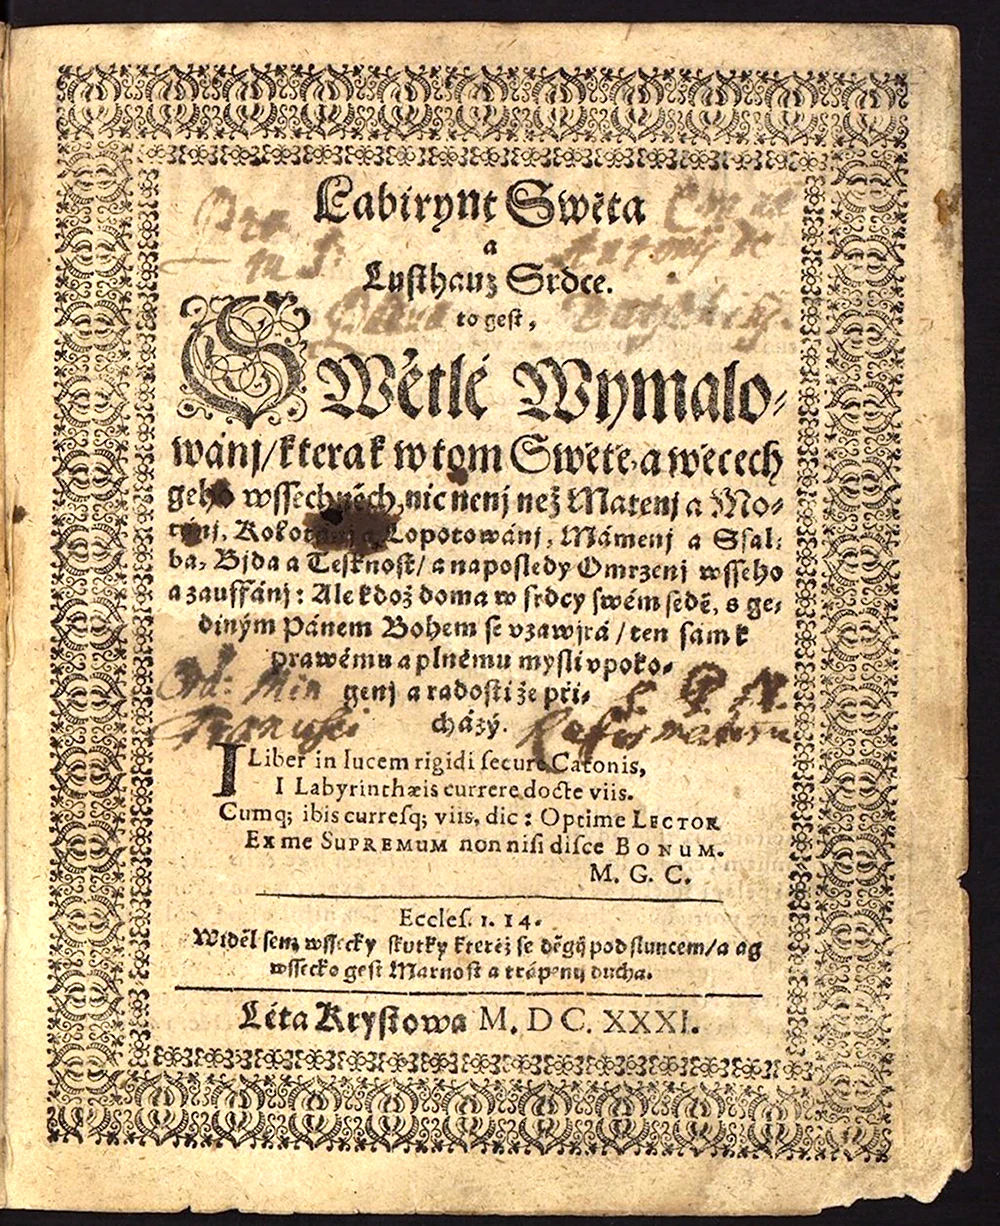 Labirynt Swěta
a
Lusthauz Srdce.
to gest,
SWětlé Wymalo-
wánj/ kterak w tom Swětě, a wěcech
geho wssechněch, nic nenj než Matenj a Mo-
Lopotowánj, Mámenj a Ssal-
ba, Bjda a Tesknost/ a naposledy Omrzenj wsseho
a zauffánj: Ale kdož doma w srdcy swém sedě, s ge-
diným Pánem Bohem se vzawjrá/ ten sám k
prawému a plnému mysli vpoko-
Ord: Min genj a radosti že při-
cházý. Reformatorum
I Liber in lucem rigidi secure Catonis,
I Labyrinthæis currere docte viis.
Cumq; ibis curresq; viis, dic: Optime LECTOR
Ex me SUPREMUM non nisi disce BONUM.
M. G. C.
Eccles. 1. 14.
Widěl sem wssecky skutky kteréž se děgj pod sluncem/ a ag
wssecko gest Marnost a trápenj ducha.
Léta Krystowa M. DC. XXXI.